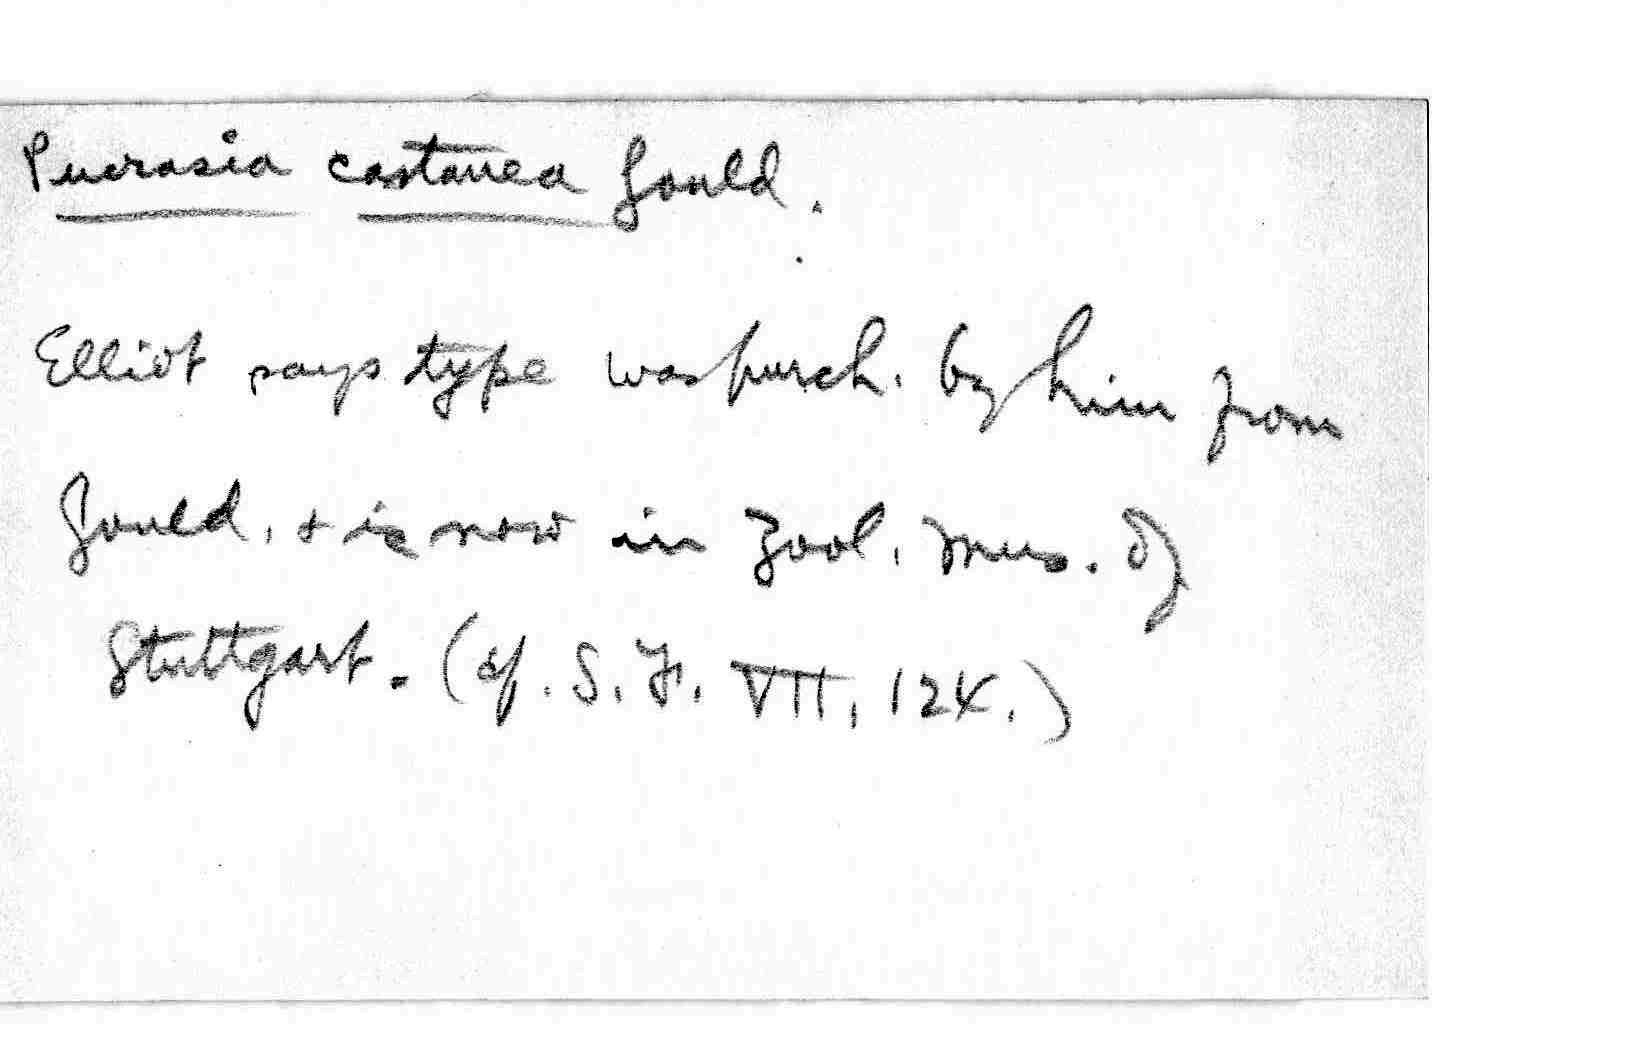 Pucrasia castanea Gould.
Elliot says type was purch. by him from
Gould, & is now in Zool. Mus. of
Stuttgart. (cf. S. F. VII, 124.)